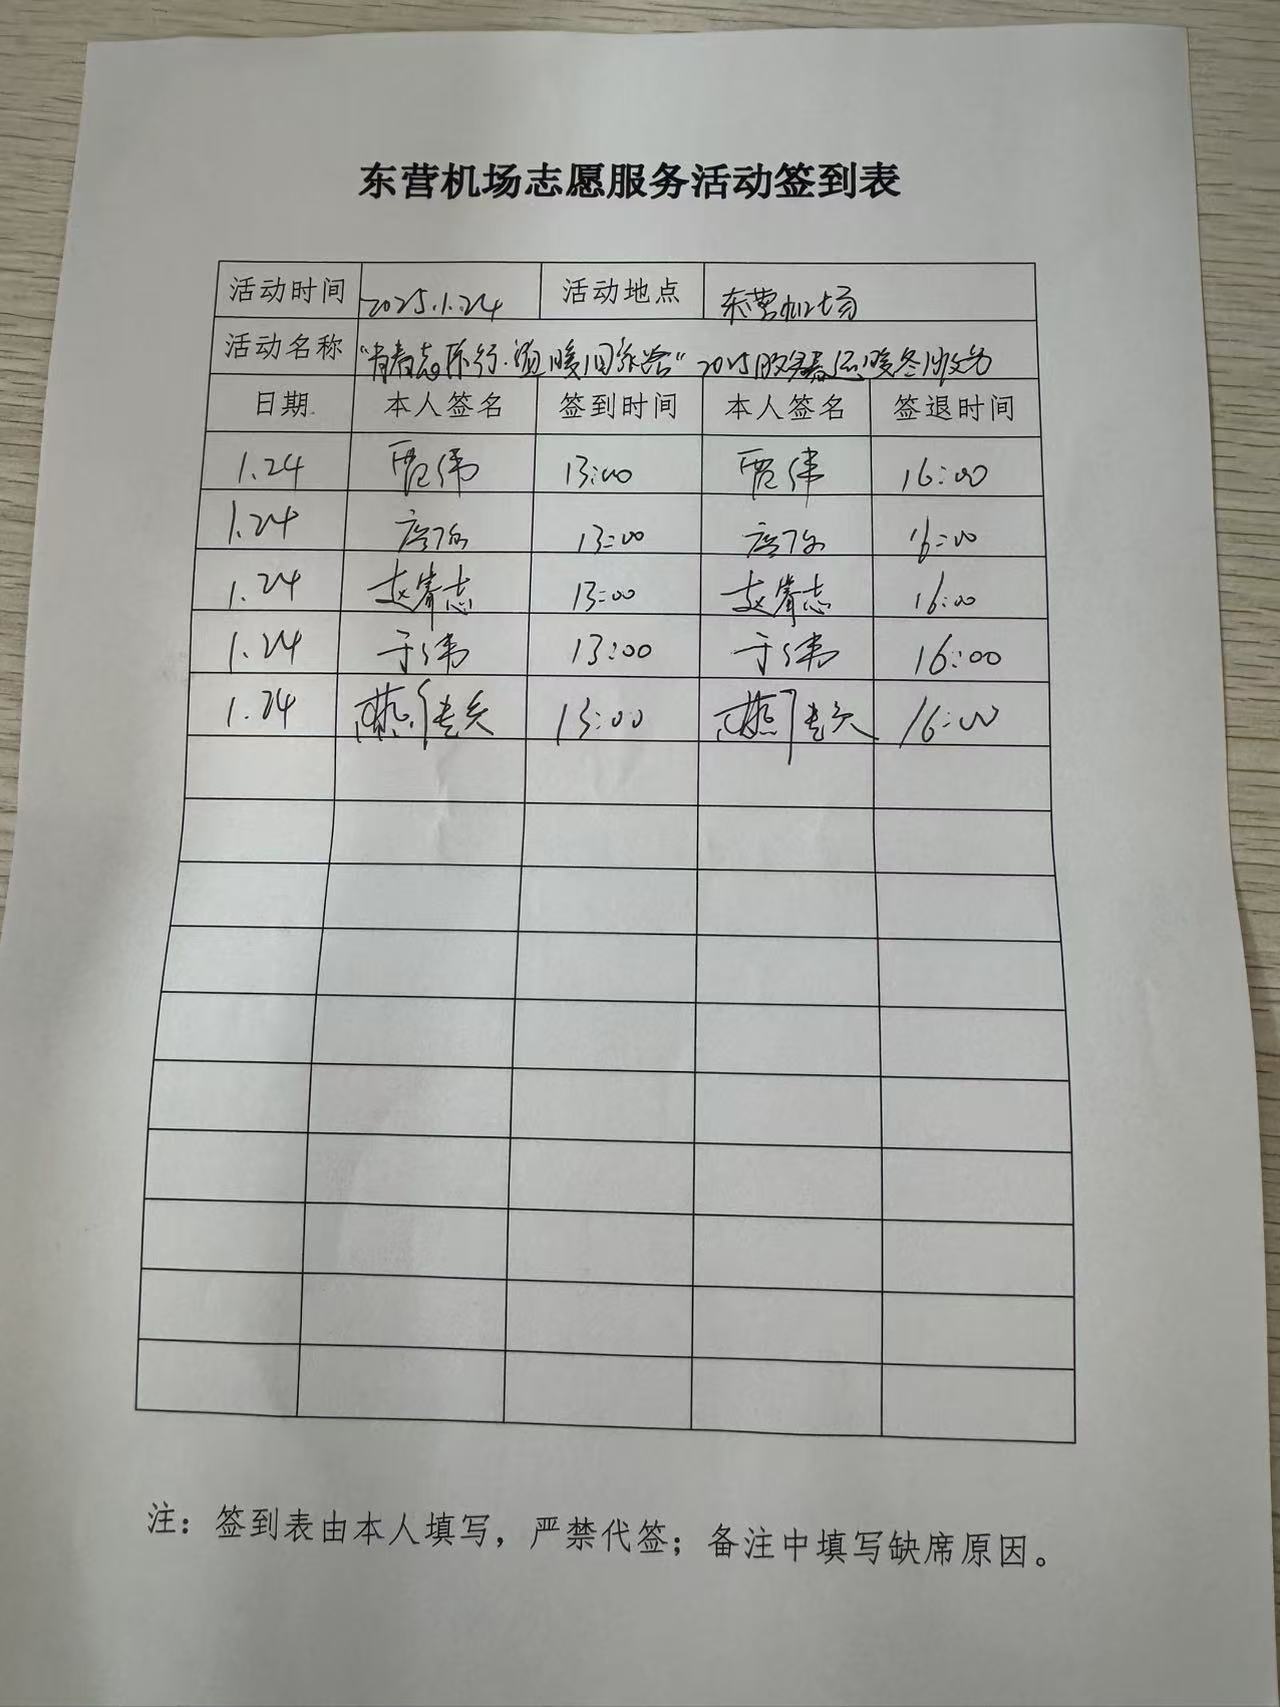 东营机场志愿服务活动签到表
活动时间 2025.1.24 活动地点 东营机场
活动名称 "青春志愿行·温暖回家路" 2025 暖冬
日期 本人签名 签到时间 本人签名 签退时间
1.24 贾伟 13:00 贾伟 16:00
1.24 13:00 16:00
1.24 赵志 13:00 赵志 16:00
1.24 于伟 13:00 于伟 16:00
1.24 13:00 16:00
注：签到表由本人填写，严禁代签；备注中填写缺席原因。